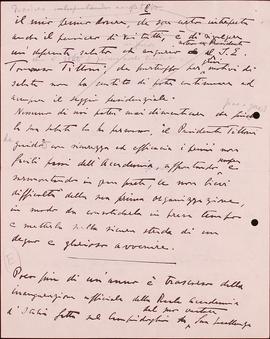 2
il mio primo dovere, che son certo interpreta
anche il pensiero di voi tutti, è di rivolgere
un deferente saluto ed augurio a S. E.
Tommaso Tittoni, che purtroppo per motivi di
salute non ha potuto continuare ad
il seggio presidenziale.
Nessuno di noi potrà mai dimenticare
la sua, il Presidente Tittoni
guidò con sicurezza ed efficacia i primi non
facili passi dell'Accademia, affrontando
e sormontando in gran parte, le non lievi
difficoltà della sua prima organizzazione,
in modo da consolidarla in breve tempo
e metterla sulla sicura strada di un
degno e glorioso avvenire.
Poco più di un'anno è trascorso dalla
inaugurazione ufficiale della Reale Accademia
d'Italia fatta sul Campidoglio da Sua Eccellenza